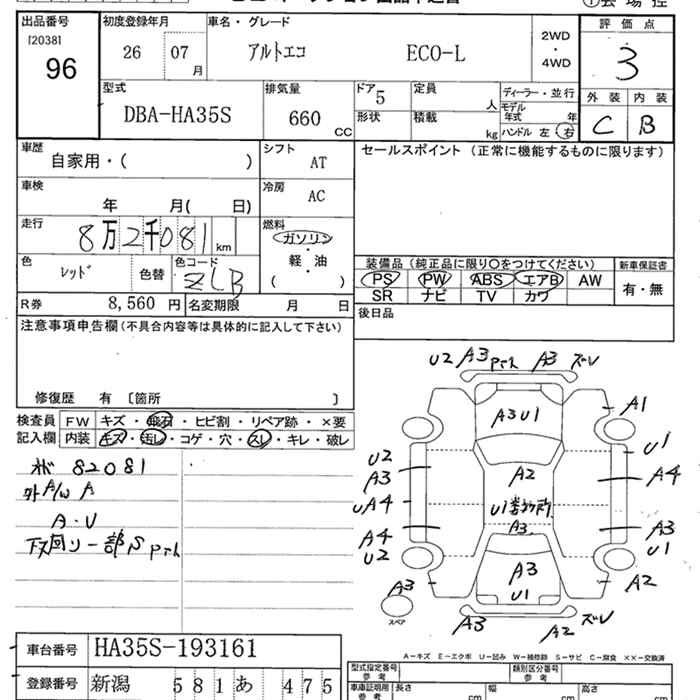 出品番号 初度登録年月 車名・グレード 評価点
[2038]
96
26 07 月 アルトエコ ECO-L 2WD・4WD 3
型式 排気量 ドア 定員 ディーラー・並行 外装 内装
DBA-HA35S 660 CC 5 人 モデル年式 年 C B
形状 積載 kg ハンドル 左 右
車歴 自家用・( ) シフト AT セールスポイント(正常に機能するものに限ります)
車検 年 月( 日) 冷房 AC
走行 8万2千081 km 燃料 ガソリン
軽・油
( )
色 レッド 色替 色コード ZCB
装備品(純正品に限り〇をつけてください) 新車保証書
PS PW ABS エアB AW 有・無
SR ナビ TV カワ
R券 8,560 円 名変期限 月 日
後日品
注意事項申告欄(不具合内容等は具体的に記入して下さい)
修復歴 有 〔箇所 〕
検査員 FW キズ・飛石・ヒビ割・リペア跡・×要
記入欄 内装 キズ・汚レ・コゲ・穴・スレ・キレ・破レ
82081
外A/W A
A・U
下回リ一部S
U2 A3 A3 ズレ
A3U1 A1
U2 U1
A3 A2 A4
UA4 U1
A4 A3 A3
U2 U1
A3 A3 A2
U1
スペア
A3 A2 ズレ
A-キズ E-エクボ U-凹み W-補修跡 S-サビ C-腐食 ××-交換済
車台番号 HA35S-193161
登録番号 新潟 581 あ 475
型式指定番号 参考 類別区分番号 参考
車庫証明用 参考 長さ 幅 高さ